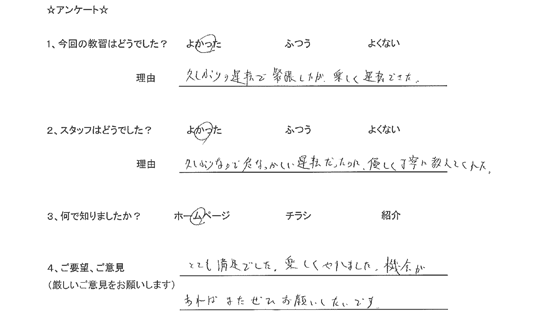 ☆アンケート☆
1、今回の教習はどうでした？ よかった ふつう よくない
理由 久しぶりの運転で緊張したが、楽しく運転できた。
2、スタッフはどうでした？ よかった ふつう よくない
理由 久しぶりなので危なっかしい運転だったのに、優しく丁寧に教えてくれた。
3、何で知りましたか？ ホームページ チラシ 紹介
4、ご要望、ご意見 とても満足でした。楽しくやれました。機会が
（厳しいご意見をお願いします）
あれば またぜひ お願いしたいです。